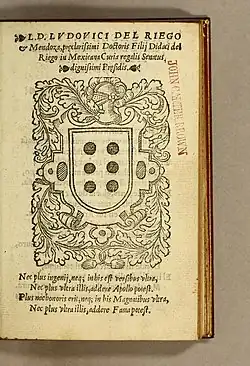 L.D. LVDOVICI DEL RIEGO
& Mendoza, præclarissimi Doctoris Filij Didaci del
Riego in Mexicani Curia regalis Senatus,
dignissimi Præsidis.
Nec plus ingenij, neq; in his est versibus vltra,
Nec plus vltra illis, addere Apollo potest.
Plus nec honoris erit, neq; in his Magnatibus vltra,
Nec plus vltra illis, addere Fama potest.
JOHN CARTER BROWN